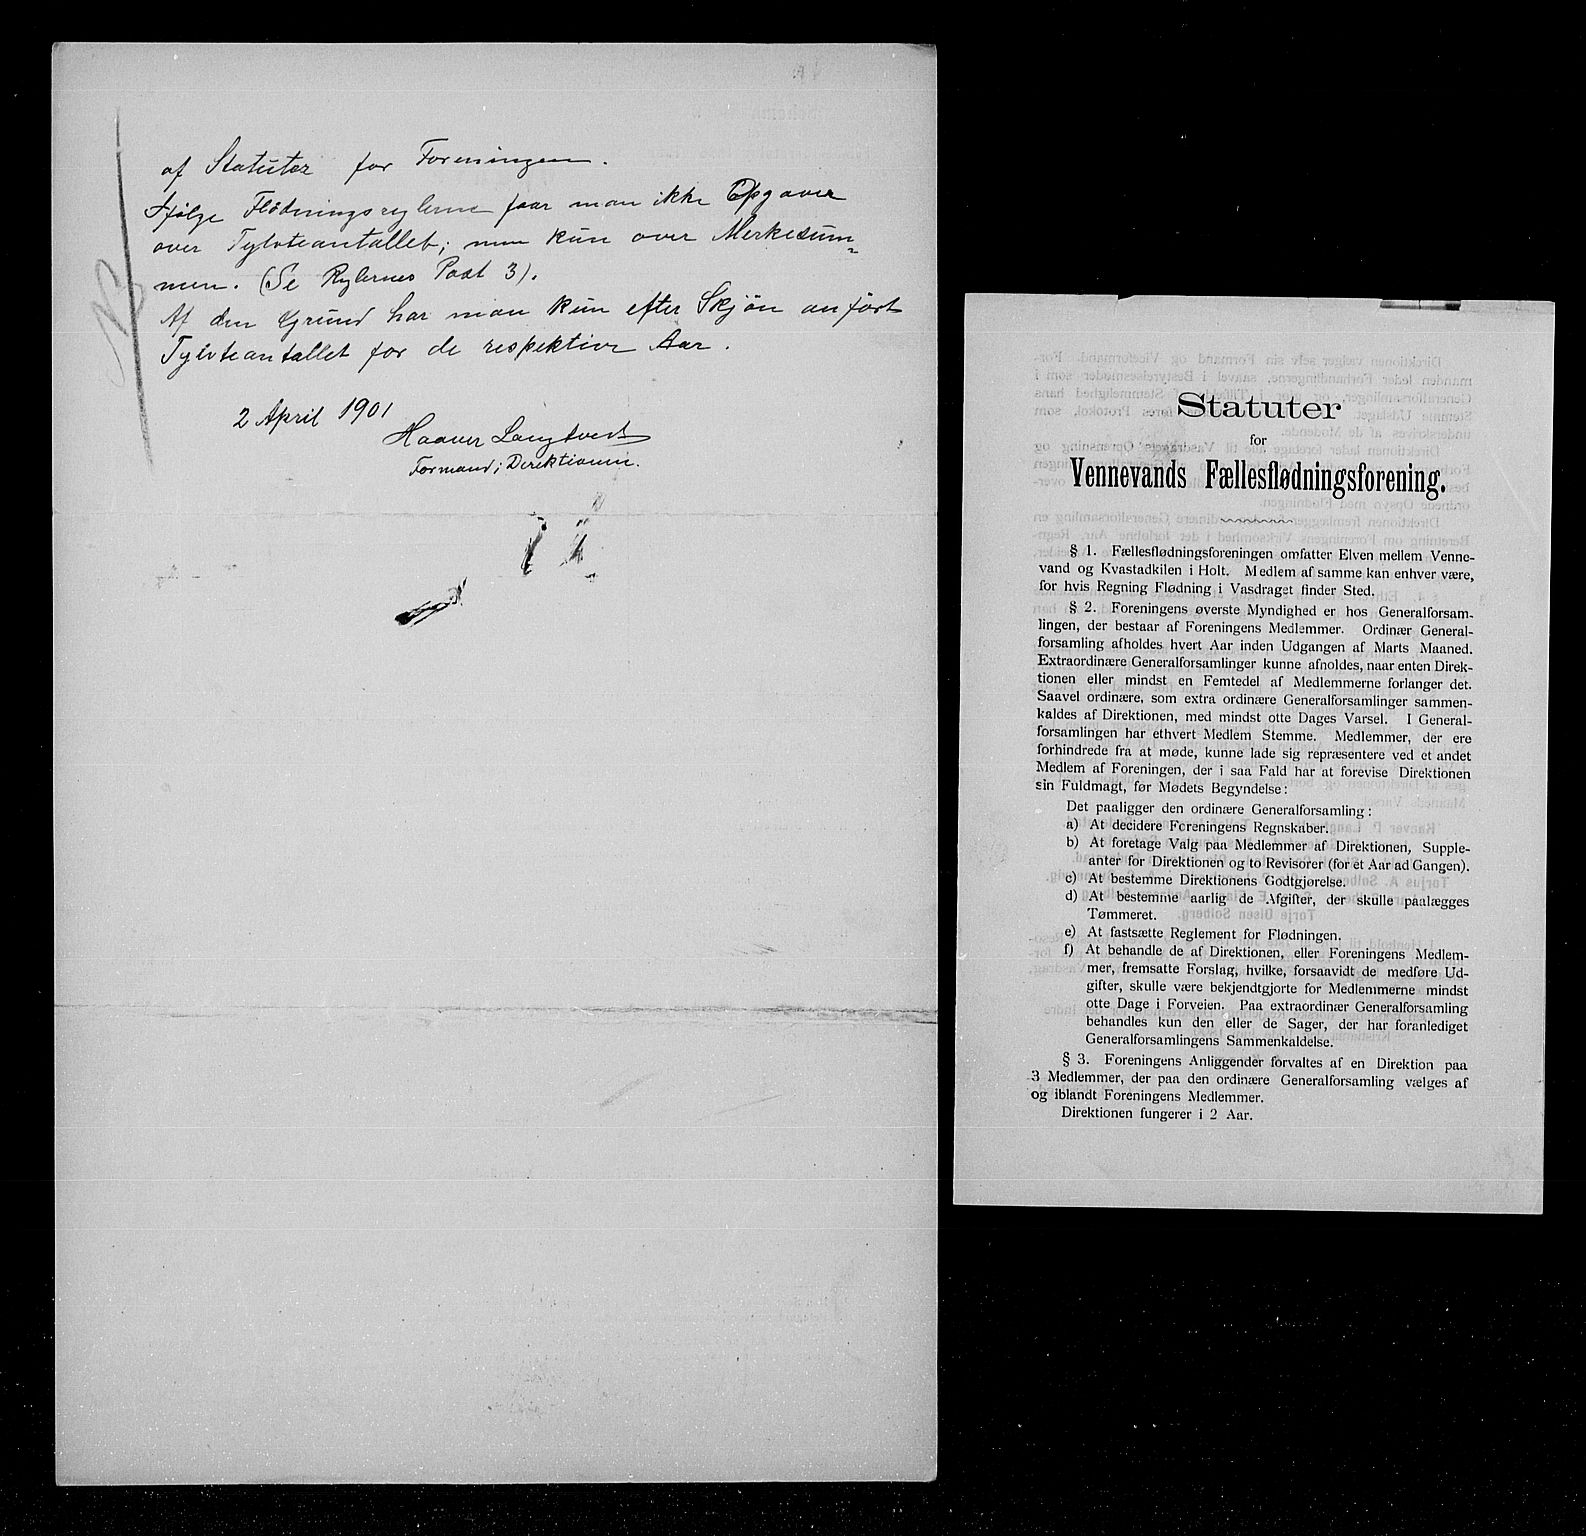 af Statuter for Foreningen.
Ifølge Flødningsreglerne faar man ikke Opgaver
over Tylvteantallet; men kun over Merkesum-
men. (Se Reglernes Post 3).
Af den Grund har man kun efter Skjøn anført
Tylvteantallet for de respektive Aar.
NB
2 April 1901
Haaver Langtvedt
Formand i Direktionen.
Statuter
for
Vennevands Fællesflødningsforening.
§ 1. Fællesflødningsforeningen omfatter Elven mellem Venne-
vand og Kvastadkilen i Holt. Medlem af samme kan enhver være,
for hvis Regning Flødning i Vasdraget finder Sted.
§ 2. Foreningens øverste Myndighed er hos Generalforsam-
lingen, der bestaar af Foreningens Medlemmer. Ordinær General-
forsamling afholdes hvert Aar inden Udgangen af Marts Maaned.
Extraordinære Generalforsamlinger kunne afholdes, naar enten Direk-
tionen eller mindst en Femtedel af Medlemmerne forlanger det.
Saavel ordinære, som extra ordinære Generalforsamlinger sammen-
kaldes af Direktionen, med mindst otte Dages Varsel. I General-
forsamlingen har ethvert Medlem Stemme. Medlemmer, der ere
forhindrede fra at møde, kunne lade sig repræsentere ved et andet
Medlem af Foreningen, der i saa Fald har at forevise Direktionen
sin Fuldmagt, før Mødets Begyndelse:
Det paaligger den ordinære Generalforsamling:
a) At decidere Foreningens Regnskaber.
b) At foretage Valg paa Medlemmer af Direktionen, Supple-
anter for Direktionen og to Revisorer (for et Aar ad Gangen).
c) At bestemme Direktionens Godtgjørelse.
d) At bestemme aarlig de Afgifter, der skulle paalægges
Tømmeret.
e) At fastsætte Reglement for Flødningen.
f) At behandle de af Direktionen, eller Foreningens Medlem-
mer, fremsatte Forslag, hvilke, forsaavidt de medføre Ud-
gifter, skulle være bekjendtgjorte for Medlemmerne mindst
otte Dage i Forveien. Paa extraordinær Generalforsamling
behandles kun den eller de Sager, der har foranlediget
Generalforsamlingens Sammenkaldelse.
§ 3. Foreningens Anliggender forvaltes af en Direktion paa
3 Medlemmer, der paa den ordinære Generalforsamling vælges af
og iblandt Foreningens Medlemmer.
Direktionen fungerer i 2 Aar.